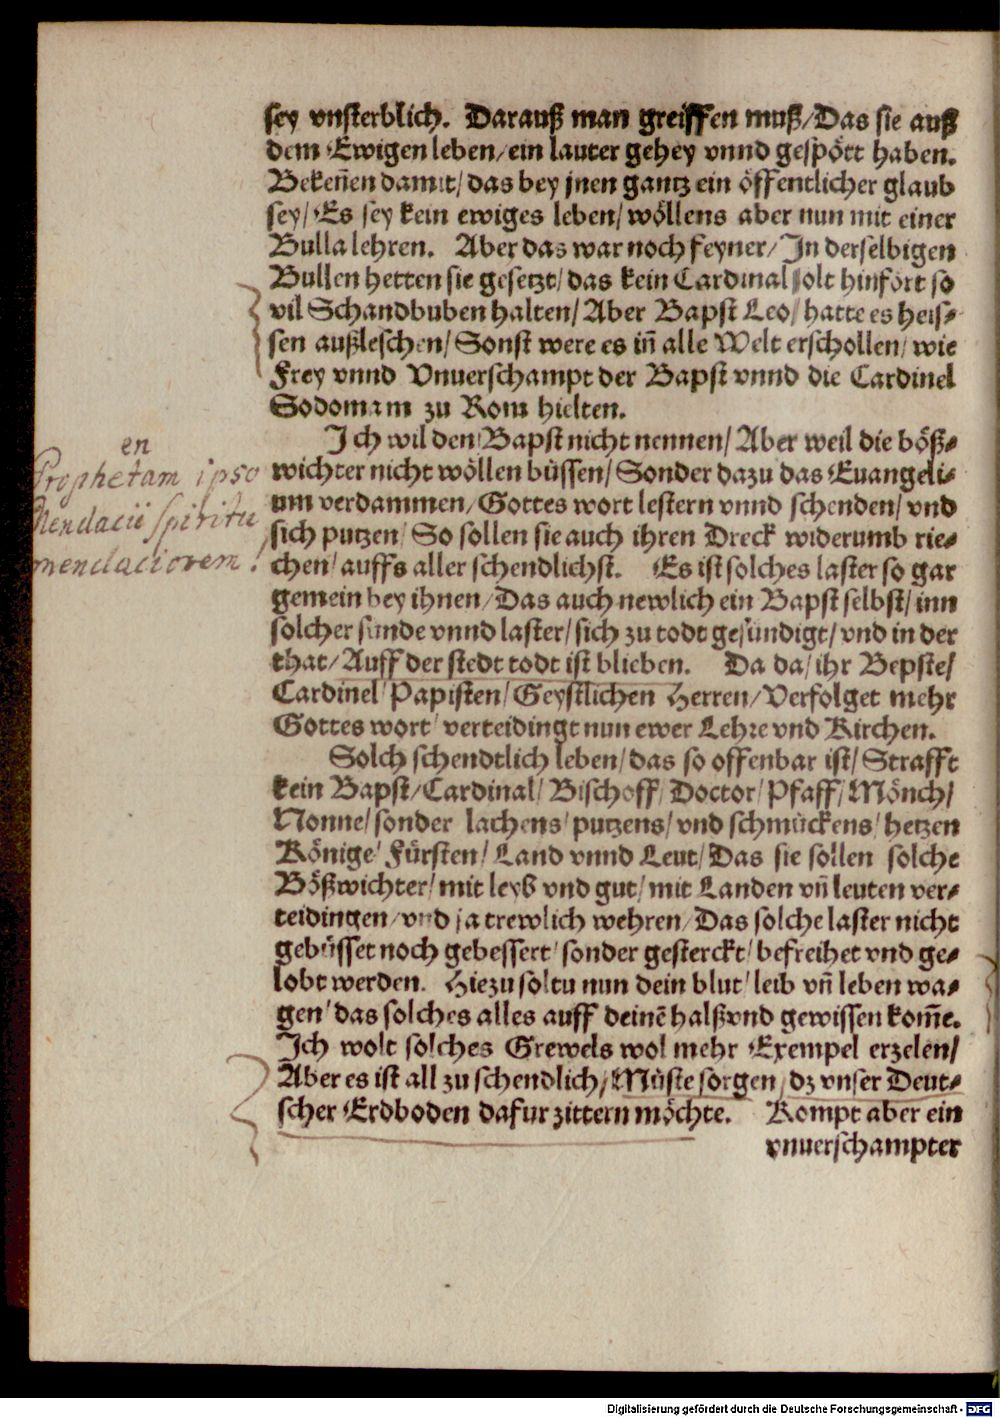 sey vnsterblich. Darauß man greiffen muß/Das sie auß
dem Ewigen leben/ein lauter gehey vnnd gespött haben.
Bekeñen damit/das bey jnen gantz ein öffentlicher glaub
sey/Es sey kein ewiges leben/wöllens aber nun mit einer
Bulla lehren. Aber das war noch feyner/In derselbigen
Bullen hetten sie gesetzt/das kein Cardinal solt hinfört so
vil Schandbuben halten/Aber Bapst Leo/hatte es heis-
sen außleschen/Sonst were es iñ alle Welt erschollen/wie
Frey vnnd Vnuerschampt der Bapst vnnd die Cardinel
Sodomam zu Rom hielten.
Ich wil den Bapst nicht nennen/Aber weil die böß-
wichter nicht wöllen büssen/Sonder dazu das Euangeli-
um verdammen/Gottes wort lestern vnnd schenden/vnd
sich putzen/So sollen sie auch ihren Dreck widerumb rie-
chen/auffs aller schendlichst. Es ist solches laster so gar
gemein bey ihnen/Das auch newlich ein Bapst selbst/inn
solcher sünde vnnd laster/sich zu todt gesündigt/vnd in der
that/Auff der stedt todt ist blieben. Da da/ihr Bepste/
Cardinel/Papisten/Geystlichen Herren/Verfolget mehr
Gottes wort/verteidingt nun ewer Lehre vnd Kirchen.
Solch schendtlich leben/das so offenbar ist/Strafft
kein Bapst/Cardinal/Bischoff/Doctor/Pfaff/Mönch/
Nonne/sonder lachens/putzens/vnd schmückens/hetzen
Könige/Fürsten/Land vnnd Leut/Das sie sollen solche
Bößwichter/mit leyb vnd gut/mit Landen vñ leuten ver-
teidingen/vnd ja trewlich wehren/Das solche laster nicht
gebüsset noch gebessert/sonder gesterckt/befreihet vnd ge-
lobt werden. Hiezu soltu nun dein blut/leib vñ leben wa-
gen/das solches alles auff deinē halß vnd gewissen kom̃e.
Ich wolt solches Grewels wol mehr Exempel erzelen/
Aber es ist all zu schendlich/Müste sorgen/dz vnser Deut-
scher Erdboden dafur zittern möchte. Kompt aber ein
vnuerschampter
en
Prophetam ipso
Mendacii spiritu
mendaciorem!
Digitalisierung gefördert durch die Deutsche Forschungsgemeinschaft - DFG